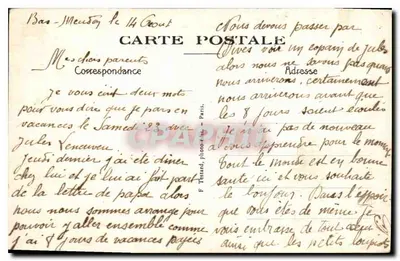 Bas-Meudon le 14 Aout
CARTE POSTALE
Correspondance
Mes chers parents
je vous écrit deux mots
pour vous dire que je pars en
vacances le Samedi 22 avec
Jules
Jeudi dernier j'ai été diner
chez lui et je lui ai fait part
de la lettre de papa alors
nous nous sommes arrangé pour
pouvoir y aller ensemble comme
j'ai 8 jours de vacances payées
Nous devons passer par
voir un copain de Jules
alors nous ne savons pas quand
Adresse
nous arriverons, certainement
nous arriverons avant que
les 8 jours soient écoulés
Je n'ai pas de nouveau
a vous apprendre pour le moment
tout le monde est en bonne
santé ici et vous souhaite
le bonjour. Dans l'espoir
que vous êtes de même je
vous embrasse de tout cœur
ainsi que les petits loupiots